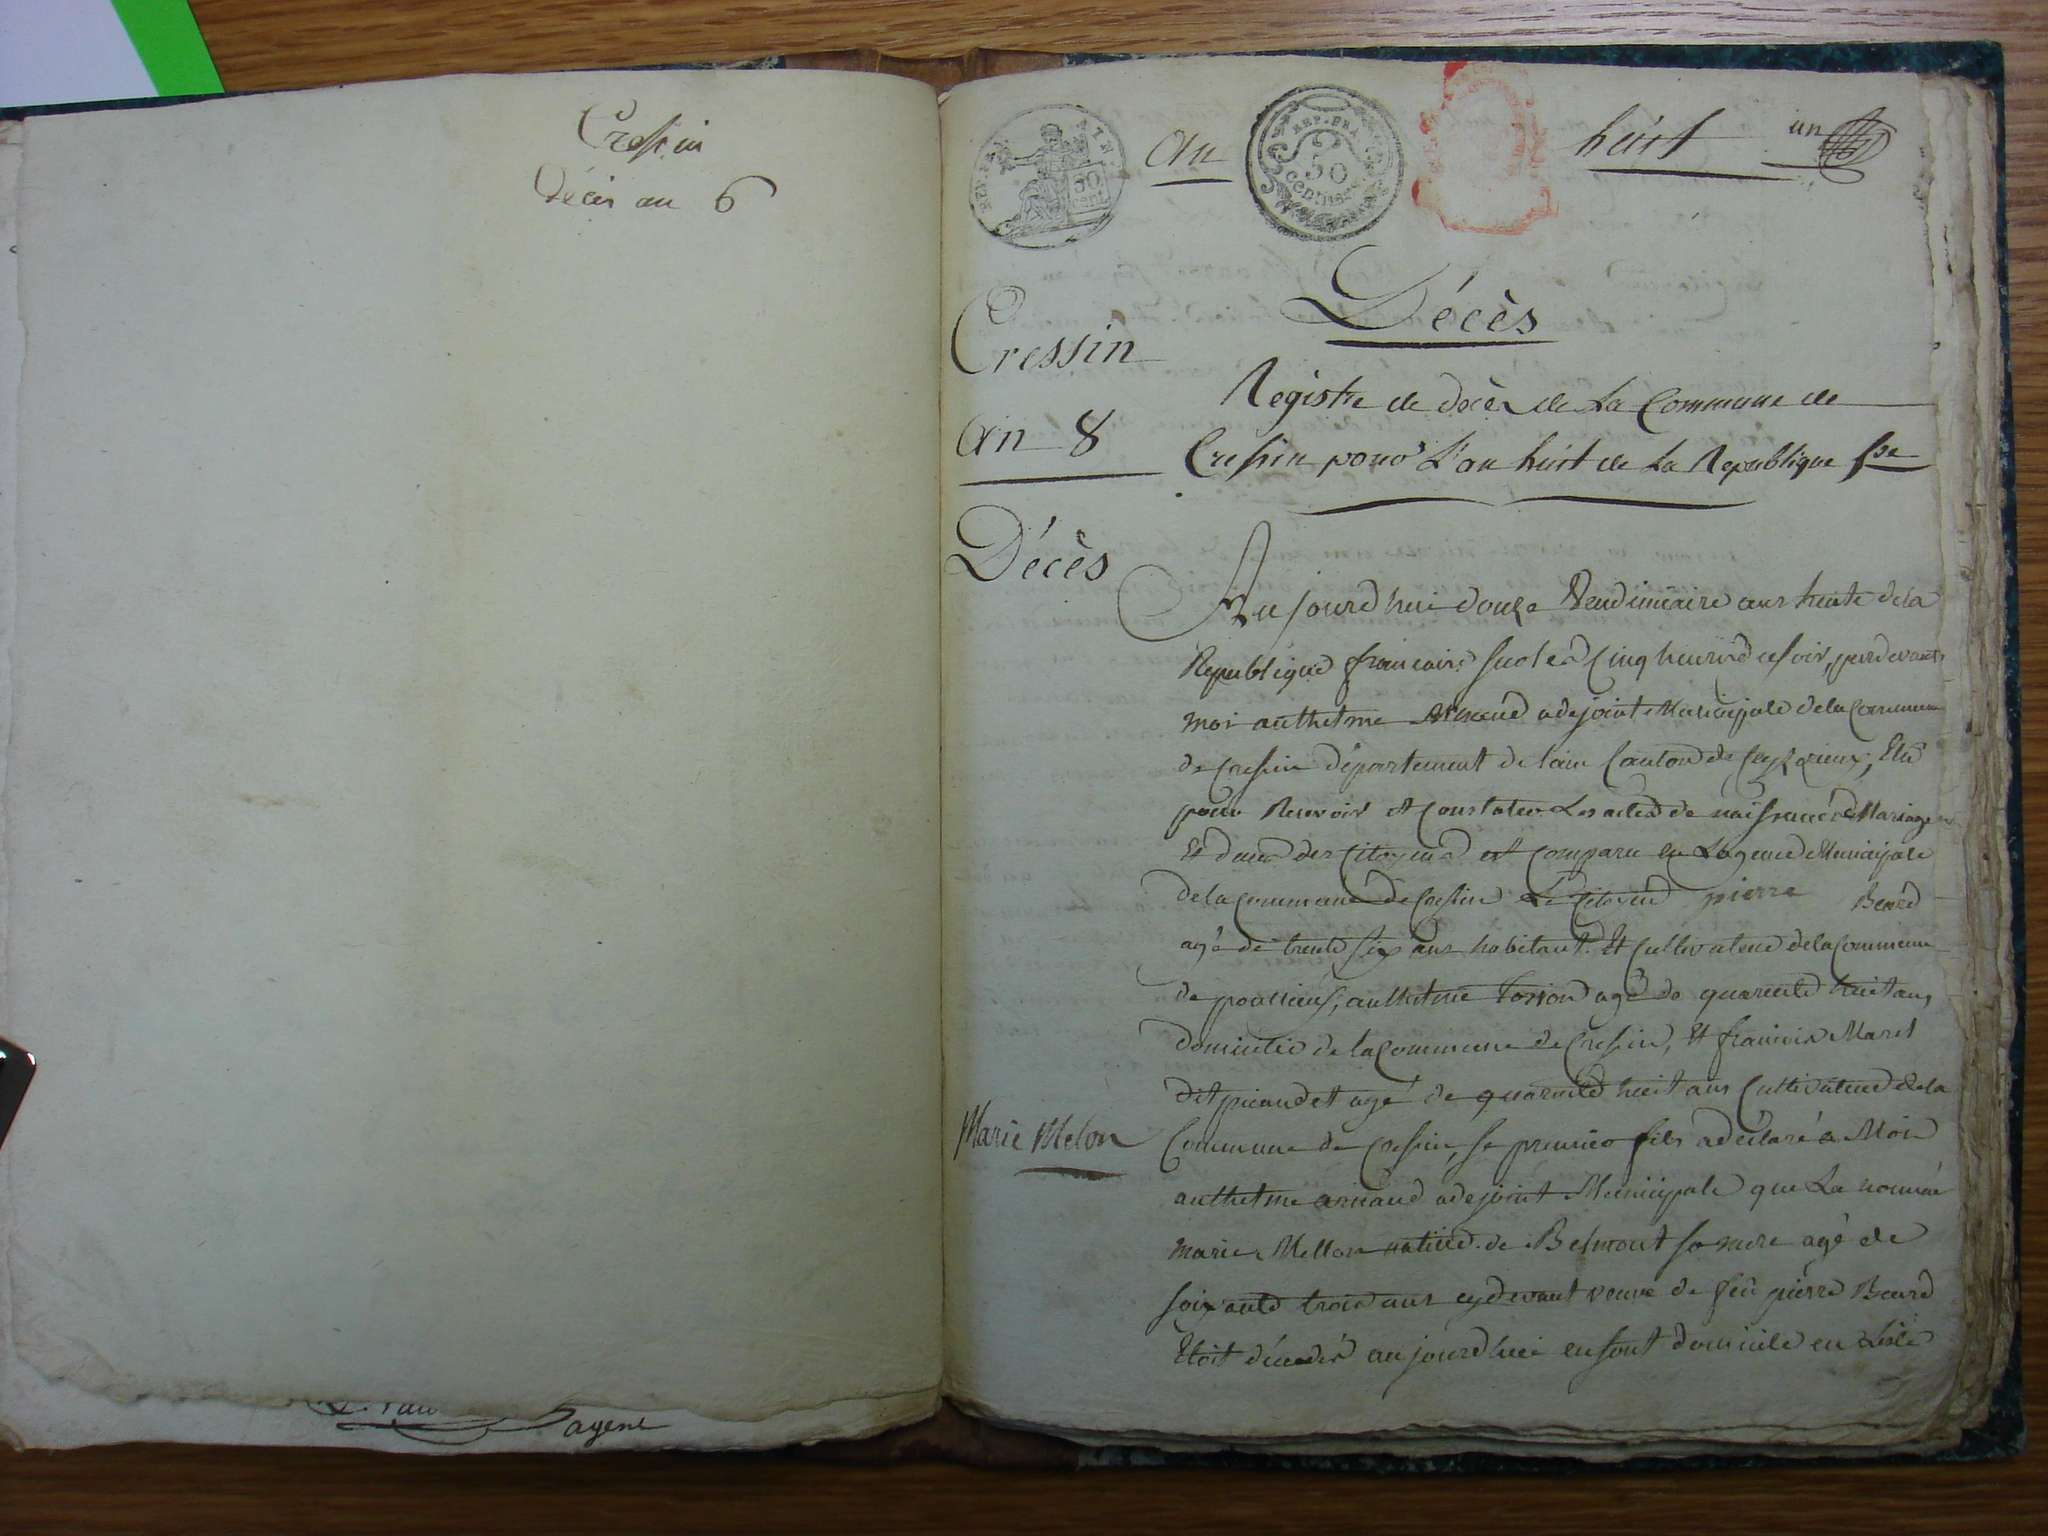 Cressin
Décès an 6
agent
REP. FRA.
50
cent.
an
REP. FRA.
50
centimes
huit
un
Cressin
an 8
Décès
Décès
Registre de décès de La Commune de
Cressin pour L'an huit de La Republique fse
Aujourdhui douze Vendimiaire ans huite de la
Republique francaise sur les Cinq heures du soir, pardevant
moi anthelme Arnaud adejoint Municipale de la Commune
de Cressin département de lain Canton de Ceyzerieux, Elu
pour Recevoir et Constater Les actes de naissance de Mariage
Et deces des Citoyens est Comparu en Lagence Municipale
de la Commune de Cressin Le Citoyen pierre Beard
agé de trente six ans habitant Et Cultivateur de la Commune
de anthelme agé de quarente huit ans,
domicilié de la Commune de Cressin, Et francois Maret
dit picaudet agé de quarente huit ans Cultivateur de la
Marie Melon
Commune de Cressin, Le premier fils a déclaré a Moi
anthelme arnaud adejoint Municipale que La nomée
marie Mellon native de Belmont sa mere agé de
soixante trois ans cydevant veuve de feu pierre Beard
Etoit décédés aujourdhui en sont domicile en Lisle